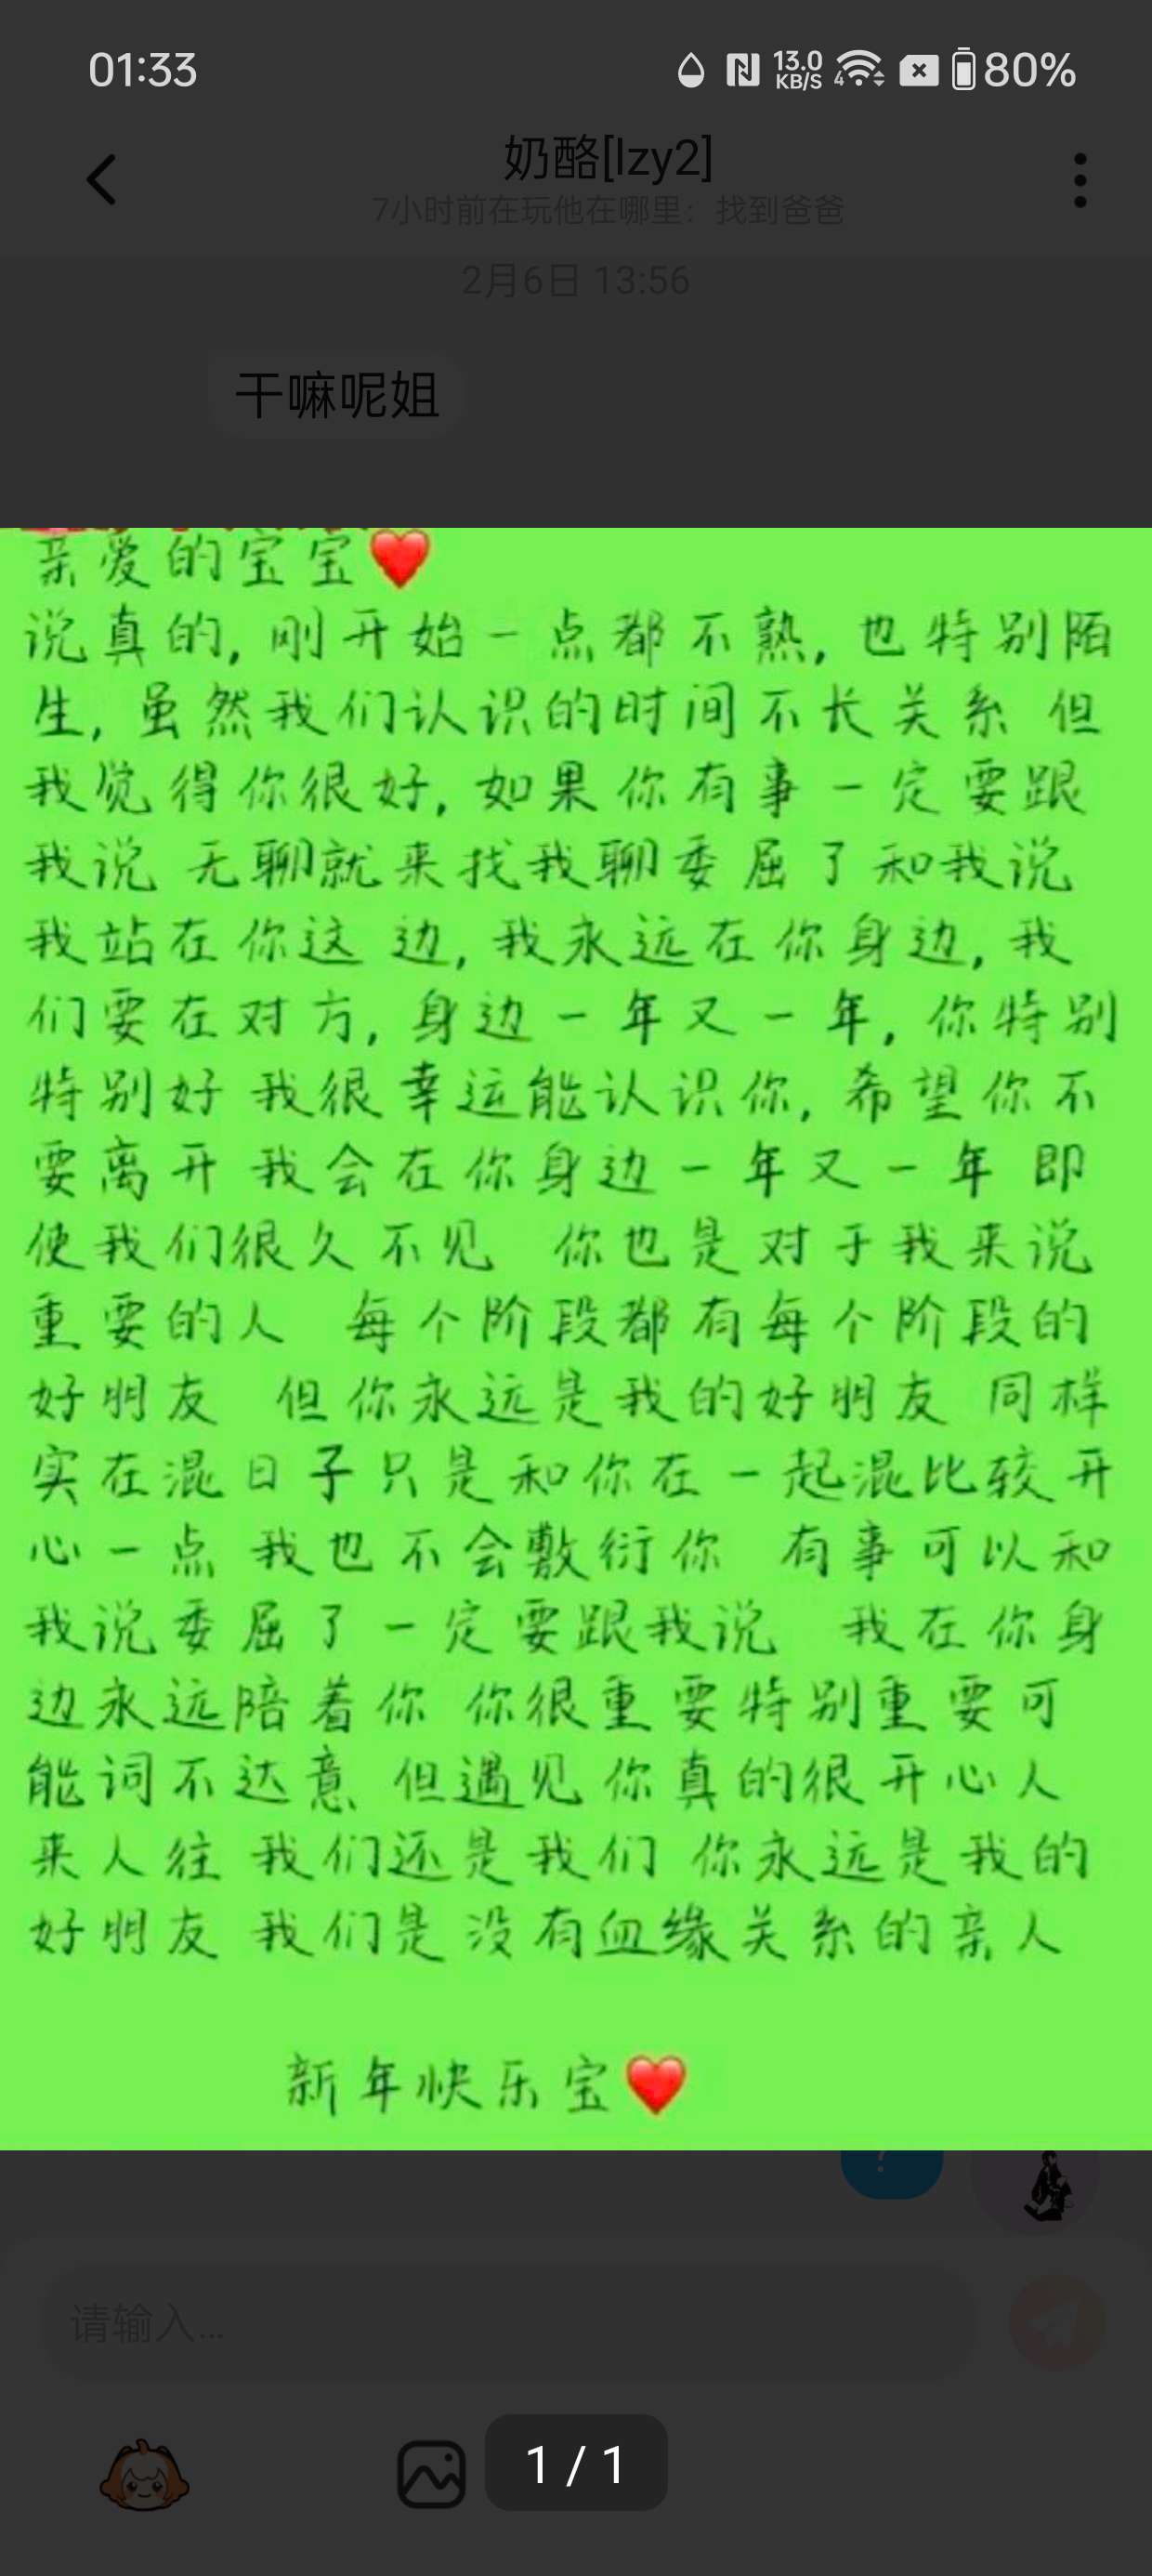 01:33
13.0
KB/S
4
80%
奶酪[lzy2]
7小时前在玩他在哪里：找到爸爸
2月6日 13:56
干嘛呢姐
亲爱的宝宝❤️
说真的,刚开始一点都不熟,也特别陌
生,虽然我们认识的时间不长关系 但
我觉得你很好,如果你有事一定要跟
我说 无聊就来找我聊委屈了和我说
我站在你这 边,我永远在你身边,我
们要在对方,身边一年又一年,你特别
特别好 我很幸运能认识你,希望你不
要离开 我会在你身边一年又一年 即
使我们很久不见 你也是对于我来说
重要的人 每个阶段都有每个阶段的
好朋友 但你永远是我的好朋友 同样
实在混日子只是和你在一起混比较开
心一点 我也不会敷衍你 有事可以和
我说委屈了一定要跟我说 我在你身
边永远陪着你 你很重要特别重要可
能词不达意 但遇见你真的很开心人
来人往 我们还是我们 你永远是我的
好朋友 我们是没有血缘关系的亲人
新年快乐宝❤️
?
请输入...
1 / 1